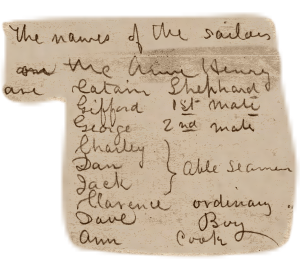 The names of the sailors
on the Anne Henry
are Catain Shephard
Gifford 1st mate
George 2nd mate
Charley
Dan } Able Seamen
Jack
Clarence ordinary.
Dave Boy
Ann Cook